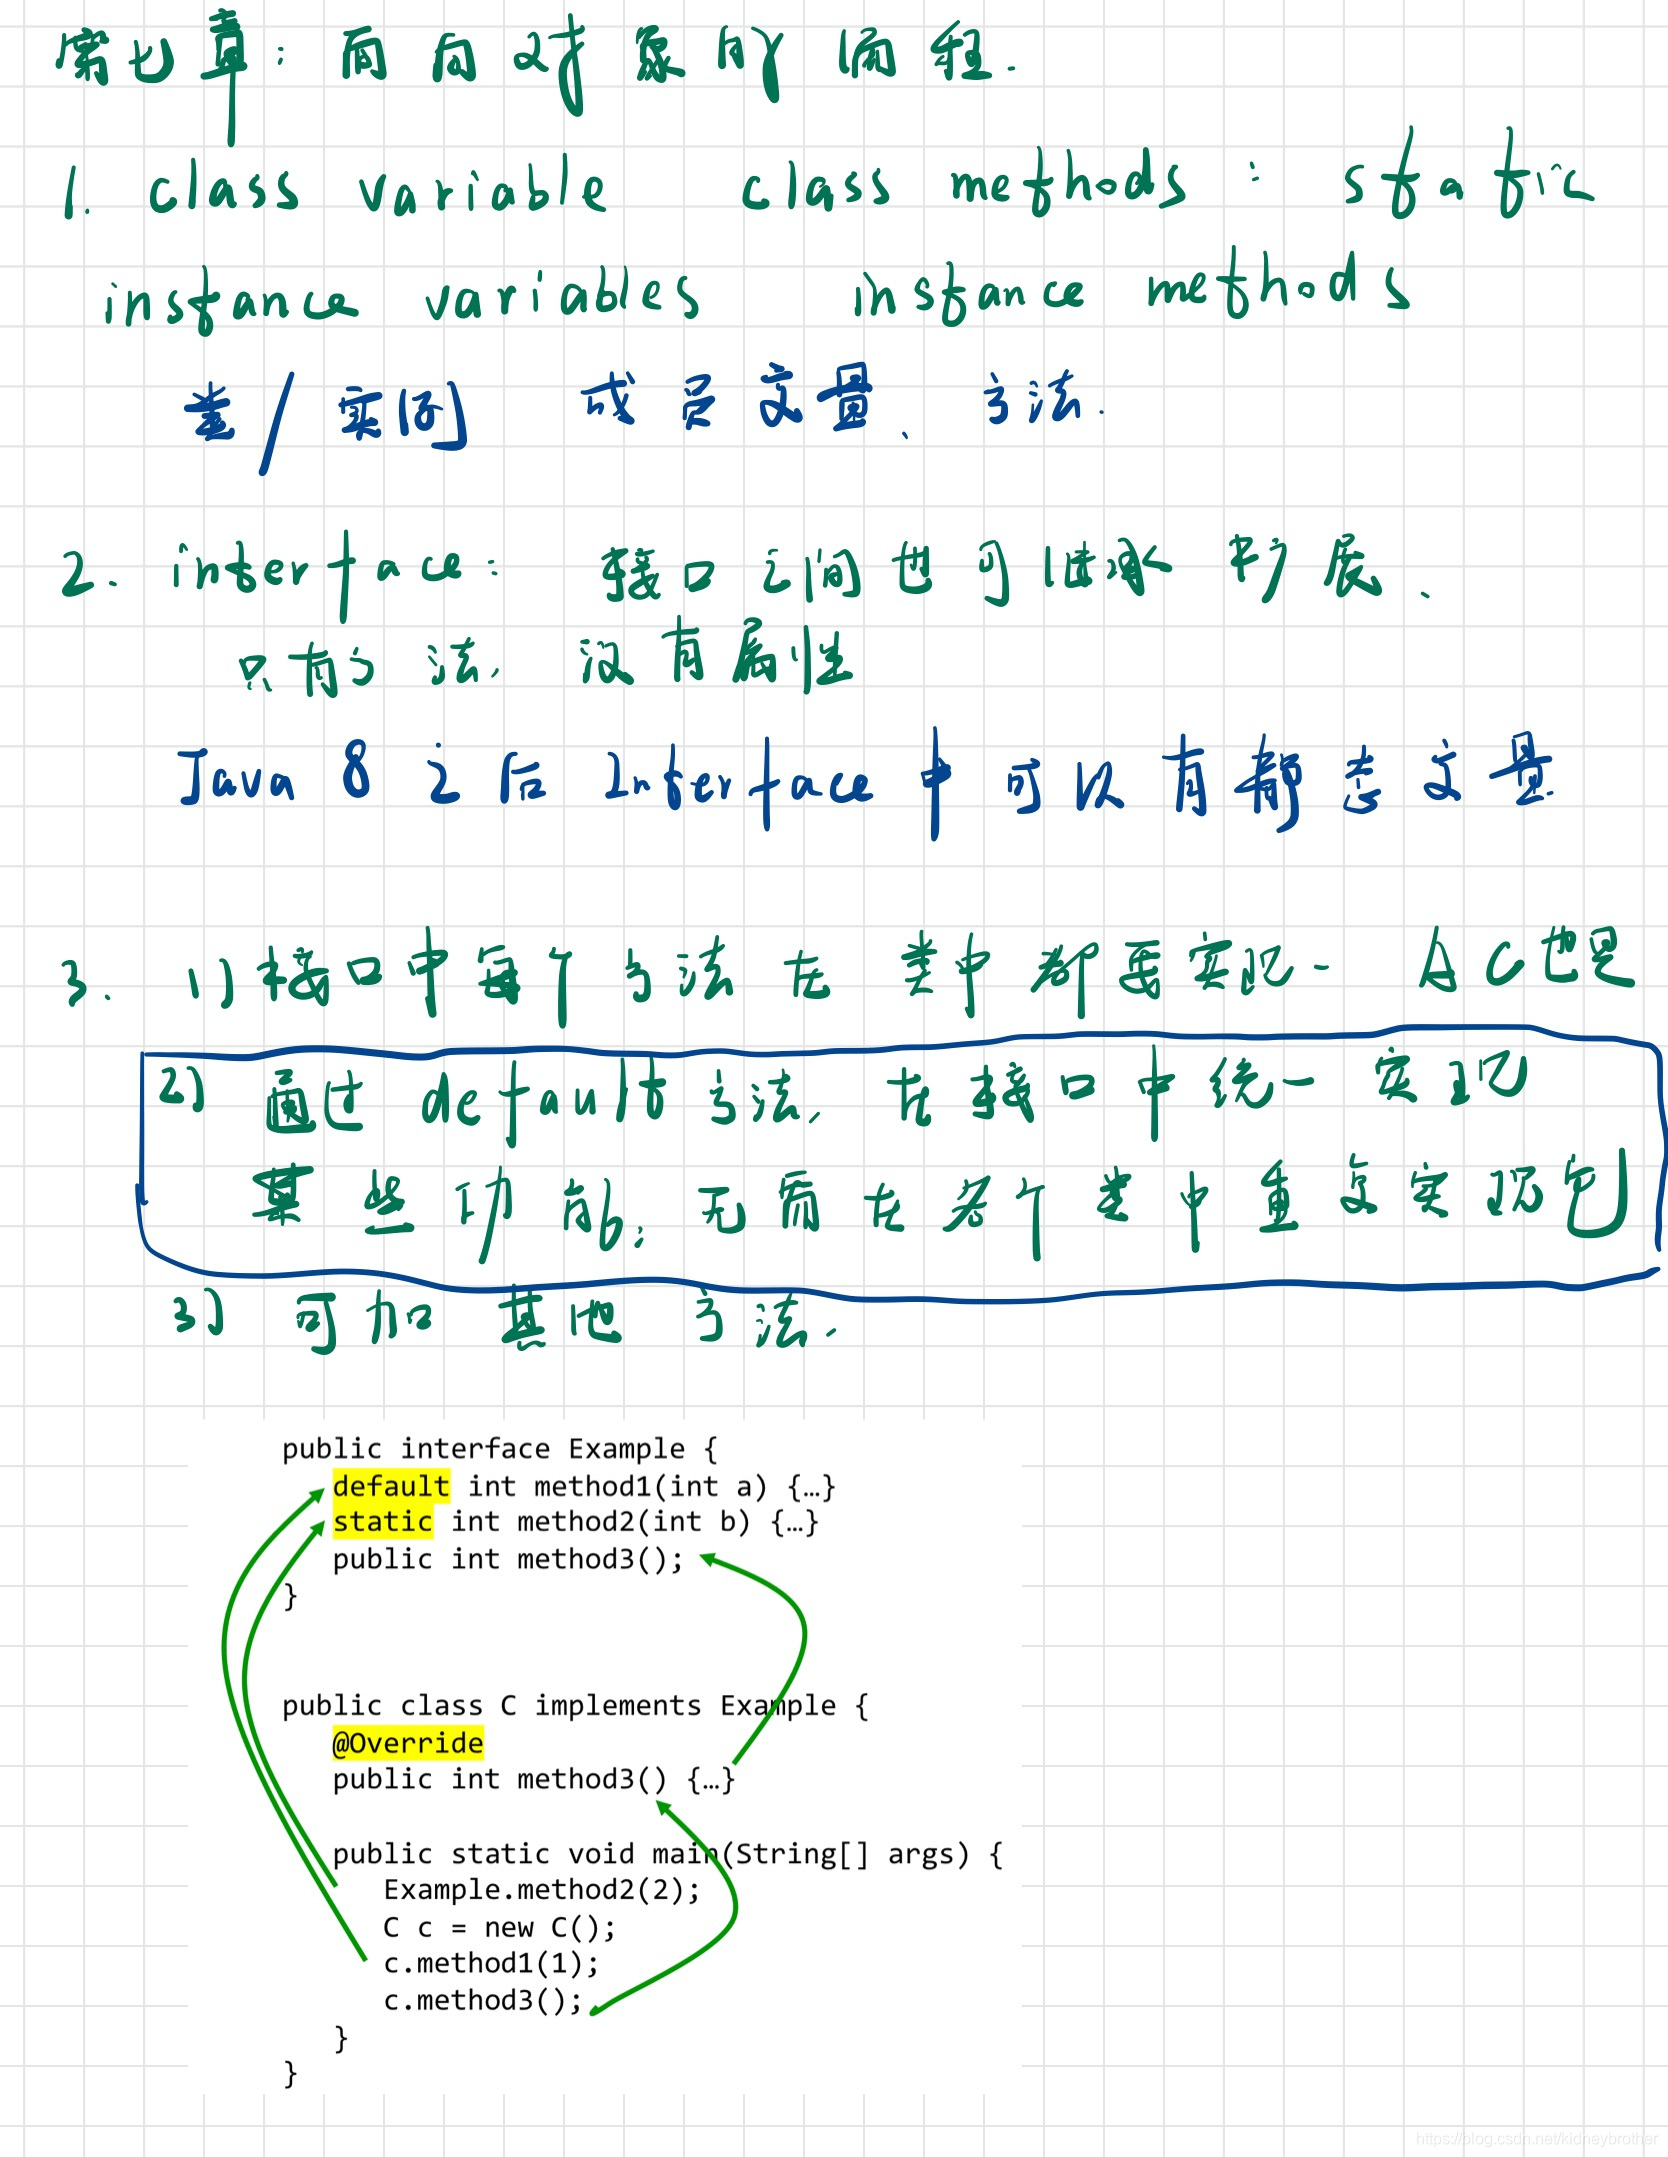 第七章：面向对象的编程.
1. class variable class methods : static
instance variables instance methods
类/实例 成员变量、方法.
2. interface: 接口之间也可继承扩展、
只有方法，没有属性
Java 8 之后 Interface 中可以有静态变量
3. 1) 接口中每个方法在类中都要实现- AC也是
2) 通过 default 方法，在接口中统一实现
某些功能，无需在各个类中重复实现它
3) 可加其他方法，
public interface Example {
default int method1(int a) {…}
static int method2(int b) {…}
public int method3();
}
public class C implements Example {
@Override
public int method3() {…}
public static void main(String[] args) {
Example.method2(2);
C c = new C();
c.method1(1);
c.method3();
}
}
https://blog.csdn.net/kidneybrother